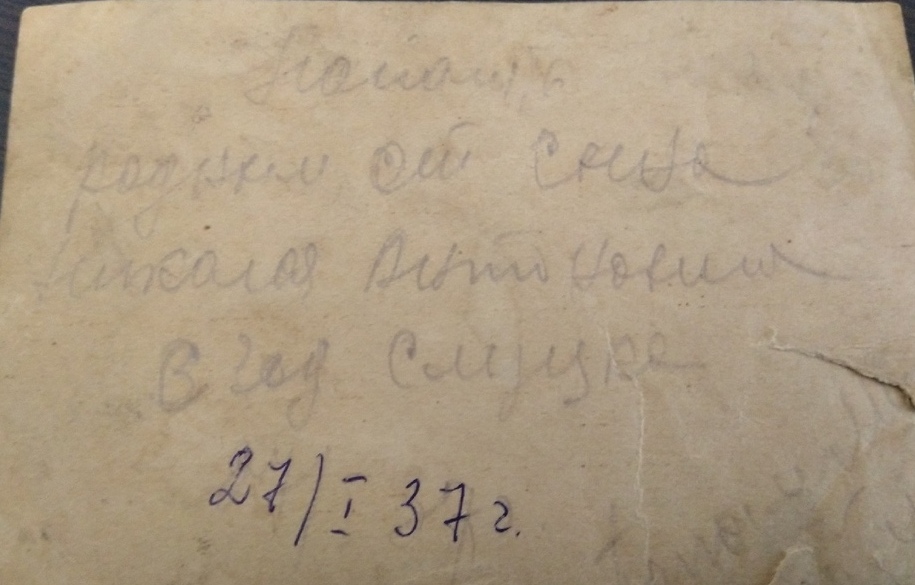 На память
родным от сына
Николая Антоновича
в год Слуцке
27/I 37 г.